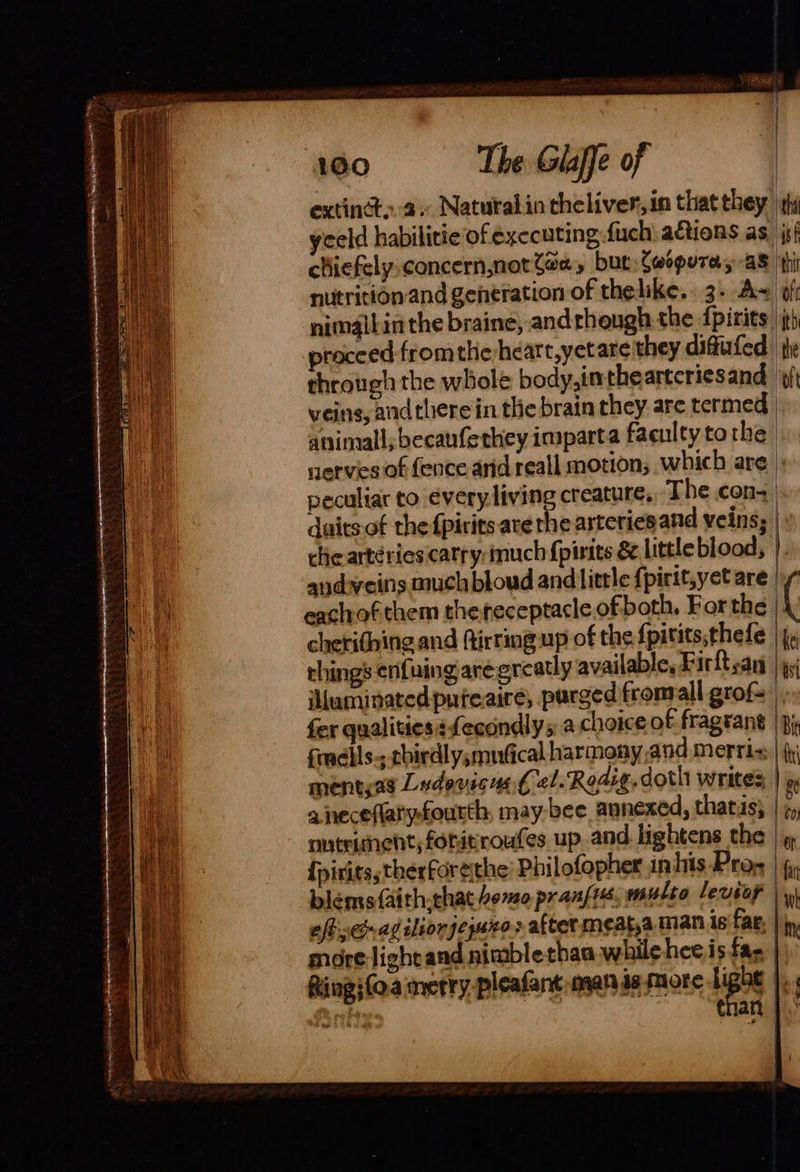 100 The Glaſſe of
extinct, 2. Natural in the liver, in that they
yeeld habilitie of executing ſuch actions as
chiefely concern, not ζῶα, but ζωόφυτα, as
nutrition and generation of the like. 3. A-
nimall in the braine, and though the ſpirits
proceed from the heart, yet are they diffuſed
through the whole body, in the arteries and
veins, and there in the brain they are termed
animall, becauſe they impart a faculty to the
nerves of ſence and reall motion, which are
peculiar to every living creature. The con-
duits of the ſpirits are the arteries and veins;
the arteries carry much ſpirits & little blood,
and veins much bloud and little ſpirit, yet are
each of them the receptacle of both. For the
cheriſhing and ſtirring up of the ſpirits, theſe
things enſuing are greatly available, Firſt, an
illuminated pure aire, purged from all groſ-
ſer qualities: ſecondly, a choice of fragrant
ſmells; thirdly, muſical harmony, and merri-
ment, as Ludovicus Cæl. Rodig. doth write;
a neceſſary fourth, may bee annexed, that is,
nutriment, for it rouſes up and lightens the
ſpirits, therfore the Philoſopher in his Pro-
blems ſaith, that homo pranſus, multo levior
eſt, & agilior jejuno: after meat, a man is far
more light and nimble than while hee is fa-
ſting; ſo a merry, pleaſant man is more light
than